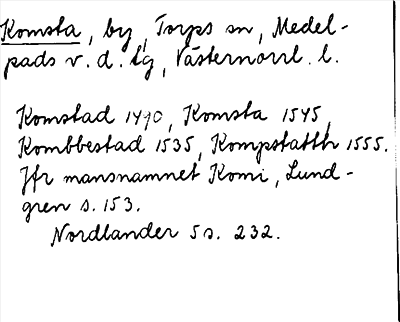 Komsta, by, Torps sn, Medel-
pads v. d. tg, Västernorrl. l.
Komstad 1490, Komsta 1545,
Kombbestad 1535, Kompstatth 1555.
Jfr mansnamnet Komi, Lund-
gren s. 153.
Nordlander 5 s. 232.